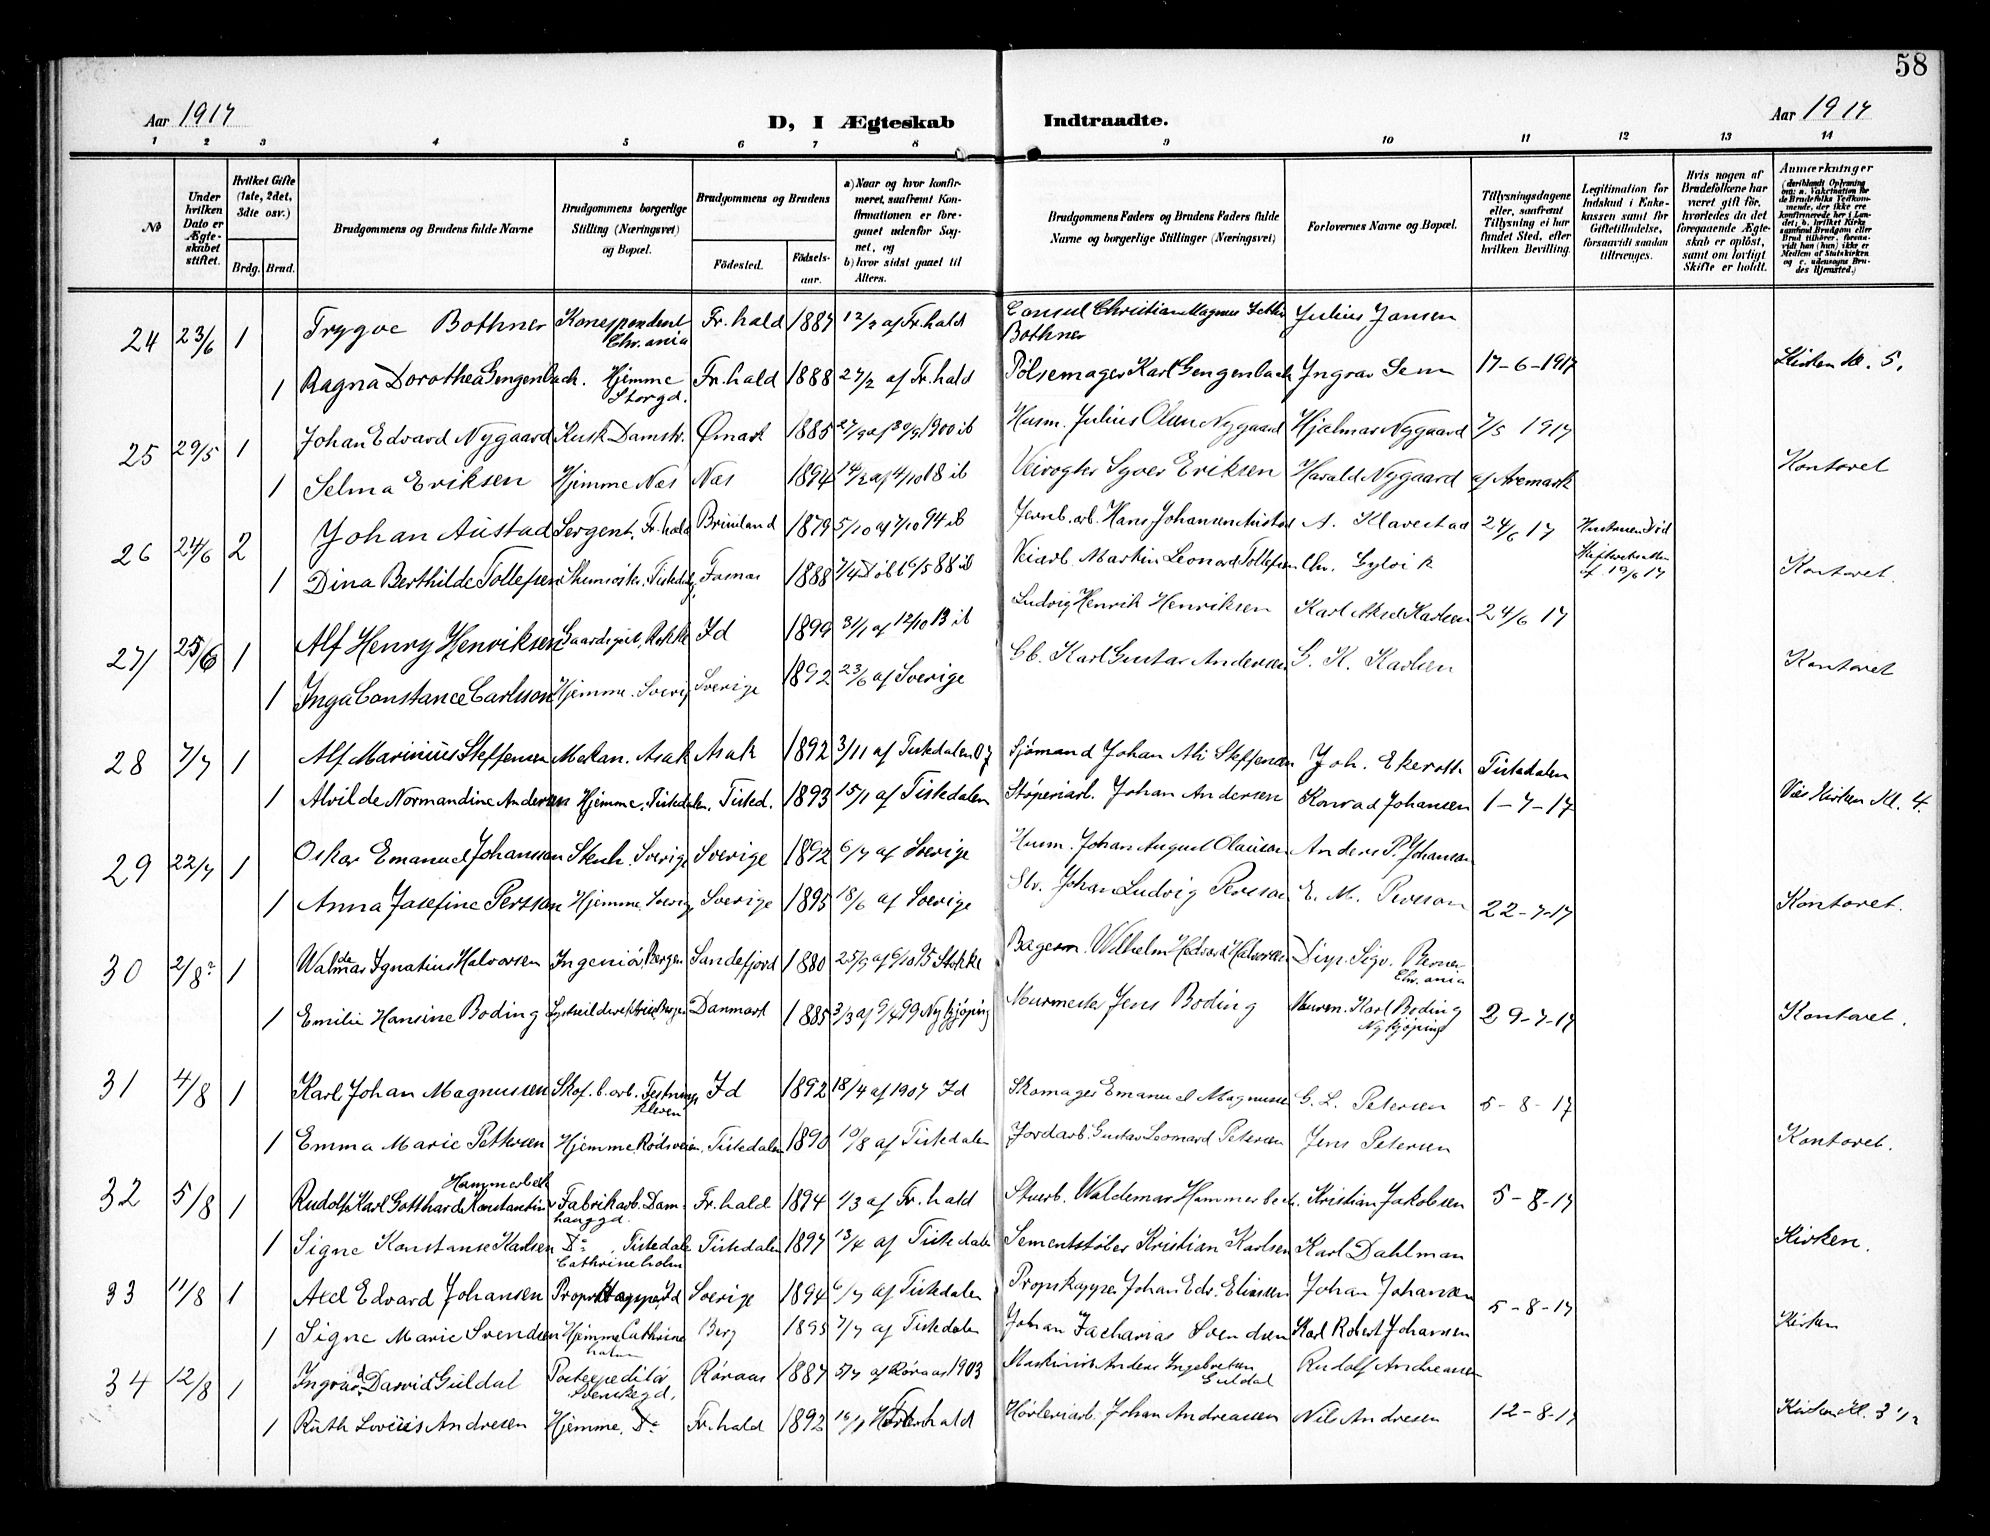 58
Aar 1917 D, I Ægteskab Indtraadte. Aar 1917
1 2 3 4 5 6 7 8 9 10 11 12 13 14
No
Under hvilken Dato er Ægteskabet stiftet.
Hvilket Gifte (1ste, 2det, 3die osv.)
Brdg. Brud.
Brudgommens og Brudens fulde Navne
Brudgommens borgerlige Stilling (Næringsvei) og Bopæl.
Brudgommens og Brudens
Födested. Födselsaar.
a) Naar og hvor konfirmeret, saafremt Konfirmationen er foregaaet udenfor Sognet, og
b) hvor sidst gaaet til Alters.
Brudgommens Faders og Brudens Faders fulde Navne og borgerlige Stillinger (Næringsvei)
Forlovernes Navne og Bopæl.
Tillysningsdagene eller, saafremt Tillysning ei har fundet Sted, efter hvilken Bevilling.
Legitimation for Indskud i Enkekassen samt for Giftetilladelse, forsaavidt saadan tiltrænges.
Hvis nogen af Brudefolkene har været gift för, hvorledes da det foregaaende Ægteskab er oplöst, samt om lovligt Skifte er holdt.
Anmærkninger
24 23/6 1 Trygve Bothner Korrespondent Chr.ania Fr.hald 1887 12/2 af Fr.hald Consul Christian Magnus Bothner Julius Jansen
1 Ragna Dorothea Gengenbach. Hjemme Storgd. Fr.hald 1888 27/2 af Fr.hald Pölsemager Karl Gengenbach Ingvar Sem 17-6-1917 Kirken Kl. 5.
25 29/5 1 Johan Edvard Nygaard Kusk Damstr. Ømark 1885 27/9 af 30/9 1900 ib Husm. Julius Olsen Nygaard Hjalmar Nygaard 7/5 1917
1 Selma Eriksen Hjemme Næs Næs 1894 14/2 af 4/10 18 ib Veivogter Syver Eriksen Harald Nygaard af Aremark Kontoret
26 24/6 2 Johan Austad Sergent, Fr.hald 1879 5/10 af 7/10 94 ib Jernb.arb. Hans Johansen Austad A. Klavestad 24/6 17
1 Dina Berthilde Tollefsen Tistedal, 1888 ib Veiarb. Martin Leonard Tollefsen Chr. Gylvik af 19/6 17 Kontoret.
27 25/6 1 Alf Henry Henriksen Rokke Id 1899 3/1 af 12/10 13 ib Ludvig Henrik Henriksen Karl Aksel Karlsen 24/6 17
1 Inga Constance Carlsson Hjemme. Sverig Sverige 1892 23/6 af Sverige Karl Gustav Andersen G. K. Karlsen Kontoret
28 7/7 1 Alf Marinius Steffensen Mekan. Asak Asak 1892 3/11 af Tistedalen 07 Sjømand Johan Steffensen Joh. Ekeroth Tistedalen
1 Alvilde Normandine Andersen Hjemme, Tistedalen. Tisted. 1893 15/1 af Tistedalen Støperiarb. Johan Andersen Konrad Johansen 1-7-17 Vies Kirken Kl. 4.
29 22/7 1 Oskar Emanuel Johansson Stenh. Sverige Sverige 1892 6/7 af Sverige Husm. Johan August Olausson Anders P. Johansson
1 Anna Josefine Persson Hjemme, Sverig. Sverige 1895 18/6 af Sverige Johan Ludvig Persson E. M. Persson 22-7-17 Kontoret.
30 2/8 1 Waldemar Ignatius Halvorsen Ingeniör, Bergen Sandefjord 1880 25/9 af 6/10 95 Stokke Wilhelm Halvorsen Disp. Sigv. Berner Chr.ania
1 Emilie Hansine Boding Danmark 1885 3/3 af 9/4 99 Nykjöping Murmester Jens Boding Murm. Karl Boding Nykjöping 29-7-17 Kontoret.
31 4/8 1 Karl Johan Magnussen Skof.b.arb. Id 1892 18/4 af 1907 Id Skomager Emanuel Magnussen G. L. Petersen 5-8-17
1 Emma Marie Pettersen Hjemme, Rödsveien, Tistedalen 1890 10/8 af Tistedalen Jordarb. Gustav Leonard Petersen Jens Petersen Kontoret.
32 5/8 1 Rudolf Karl Gotthard Konstantin Hammerbeck Fabrikarb. Damhaugd. Fr.hald 1894 1/3 af Fr.hald Stuerb. Waldemar Hammerbeck. Kristian Jakobsen 5-8-17
1 Signe Konstanse Karlsen Do, Tistedalen Cathrineholm Tistedalen 1897 13/4 af Tistedalen Sementstöber Kristian Karlsen Karl Dahlman Kirken.
33 11/8 1 Axel Edvard Johansen Propskapper, Id Sverige 1894 6/7 af Tistedalen Propskapper Johan Edv. Eliasen Johan Johansen
1 Signe Marie Svendsen Hjemme Cathrineholm Berg 1895 7/7 af Tistedalen Johan Zacharias Svendsen Karl Robert Johansen 5-8-17 Kirken
34 12/8 1 Ingvald Darvid Guldal Postexpeditör Svenskegd. Röraas 1887 5/7 af Röraas 1903 Maskinist Anders Ingebretsen Guldal Rudolf Andreassen
1 Ruth Lovise Andresen Hjemme, Do Fr.hald 1892 Johan Andreassen Nils Andresen 12-8-17 Kirken Kl. 3 1/2